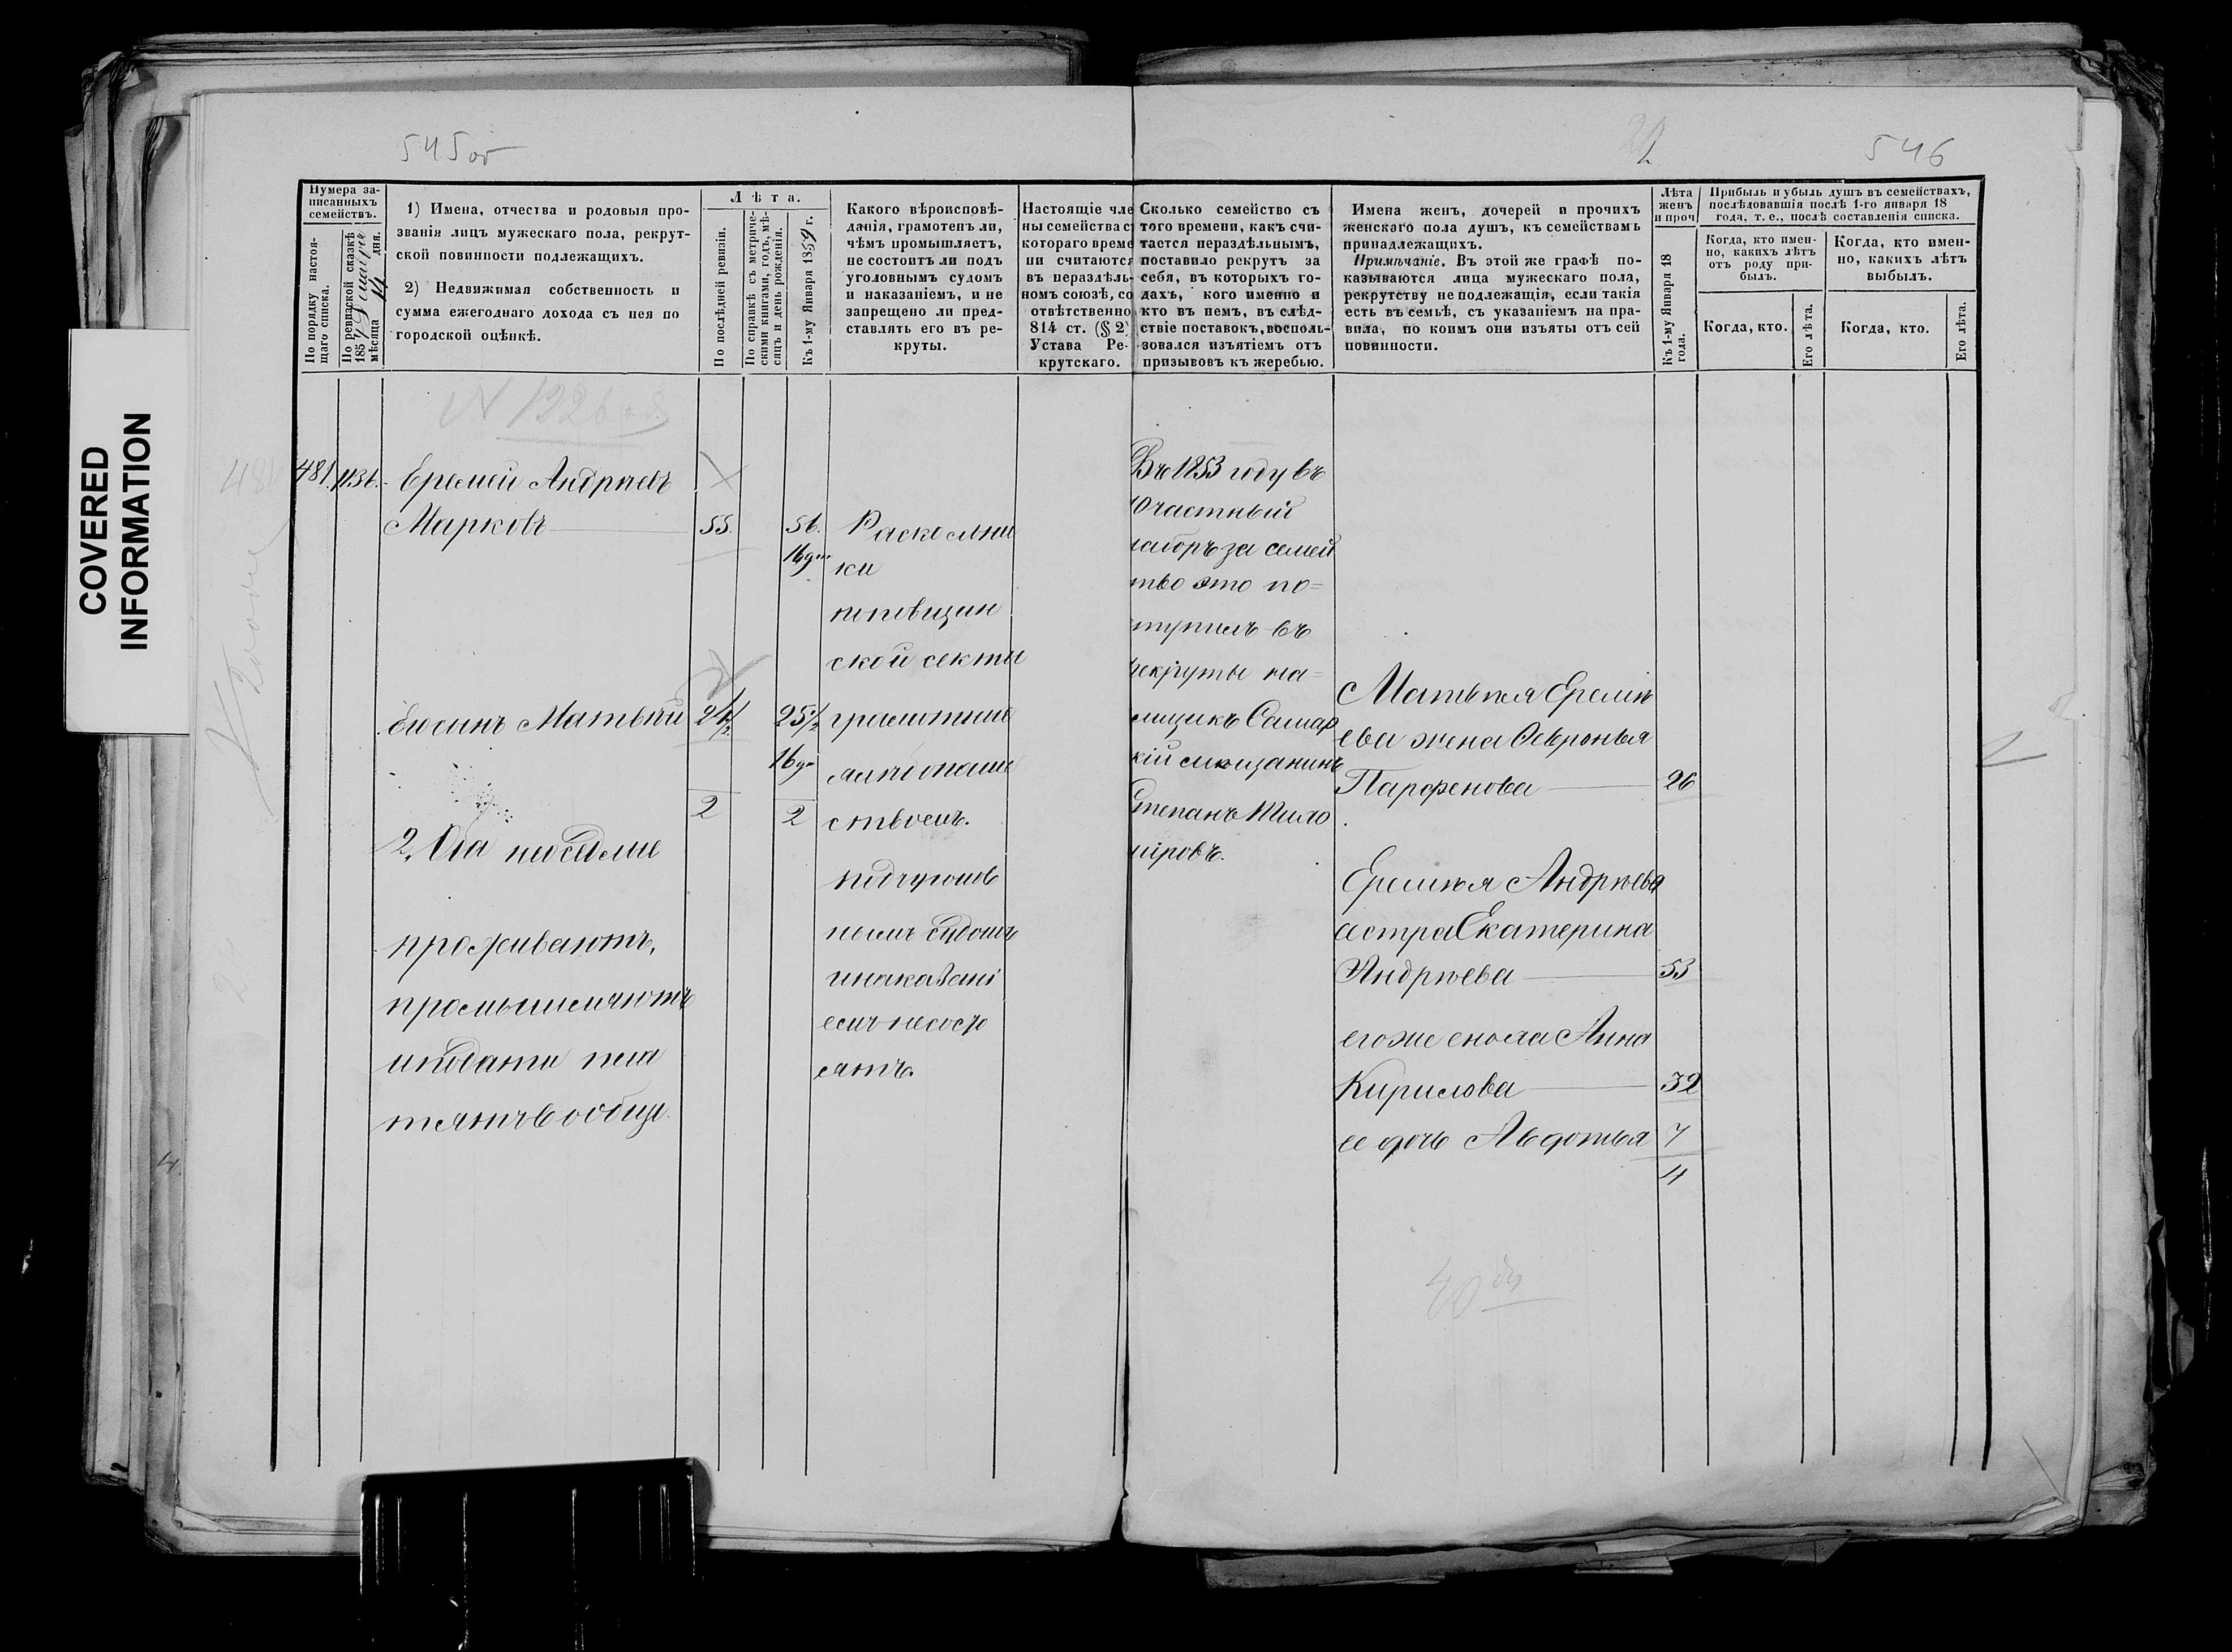 COVERED
INFORMATION
545об
546
Нумера за-
писанныхъ
семействъ.
По порядку настоя-
щаго списка.
По ревизской сказкѣ
185
мѣсяца 14 дня.
1) Имена, отчества и родовыя про-
званія лицъ мужескаго пола, рекрут-
ской повинности подлежащихъ.
2) Недвижимая собственность и
сумма ежегоднаго дохода съ нея по
городской оцѣнкѣ.
Лѣта.
По послѣдней ревизіи.
По справкѣ съ метриче-
скими книгами, годъ, мѣ-
сяцъ и день рожденія.
Къ 1-му Января 1859 г.
Какого вѣроисповѣ-
данія, грамотенъ ли,
чѣмъ промышляетъ,
не состоитъ ли подъ
уголовнымъ судомъ
и наказаніемъ, и не
запрещено ли пред-
ставлять его въ ре-
круты.
Настоящіе чле
ны семейства с
котораго време
ни считаются
въ нераздѣль-
номъ союзѣ, со
отвѣтственно
814 ст. (§ 2
Устава Ре-
крутскаго.
Сколько семейство съ
того времени, какъ счи-
тается нераздѣльнымъ,
поставило рекрутъ за
себя, въ которыхъ го-
дахъ, кого именно и
кто въ немъ, въ слѣд-
ствіе поставокъ, восполь-
зовался изъятіемъ отъ
призывовъ къ жеребью.
Имена женъ, дочерей и прочихъ
женскаго пола душъ, къ семействамъ
принадлежащихъ.
Примѣчаніе. Въ этой же графѣ по-
казываются лица мужескаго пола,
рекрутству не подлежащія, если такія
есть въ семьѣ, съ указаніемъ на пра-
вила, по коимъ они изъяты отъ сей
повинности.
Лѣта
женъ
и проч
Къ 1-му Января 18
года.
Прибыль и убыль душъ въ семействахъ,
послѣдовавшія послѣ 1-го января 18
года, т. е., послѣ составленія списка.
Когда, кто имен-
но, какихъ лѣтъ
отъ роду при-
былъ.
Когда, кто имен-
но, какихъ лѣтъ
выбылъ.
Когда, кто.
Его лѣта.
Когда, кто.
Его лѣта.
481.
Еремей Андрѣевъ
Марковъ 55. 56.
Его сынъ Матвѣй 24½ 25½
2 2
2. Оба
проживаютъ,
промышляютъ
и подати пла
тятъ вообще.
Раскольни
ки
поповщин
ской секты
грамотные
хлѣбопаше
ствомъ.
подъ уголов
нымъ судомъ
и наказані
емъ не состо
ятъ.
Въ 1853 году въ
10 частный
наборъ за семей
тво это по=
тупилъ въ
рекруты на=
емщикъ Самар
кій мѣщанинъ
Степанъ
Матвѣя Еремѣ
ева жена Февронья
Парфенова 26
Еремѣя Андрѣева
сестра Екатерина
Андрѣева 53
егоже сноха Анна
Кирилова 32
ее дочь Авдотья 7
4